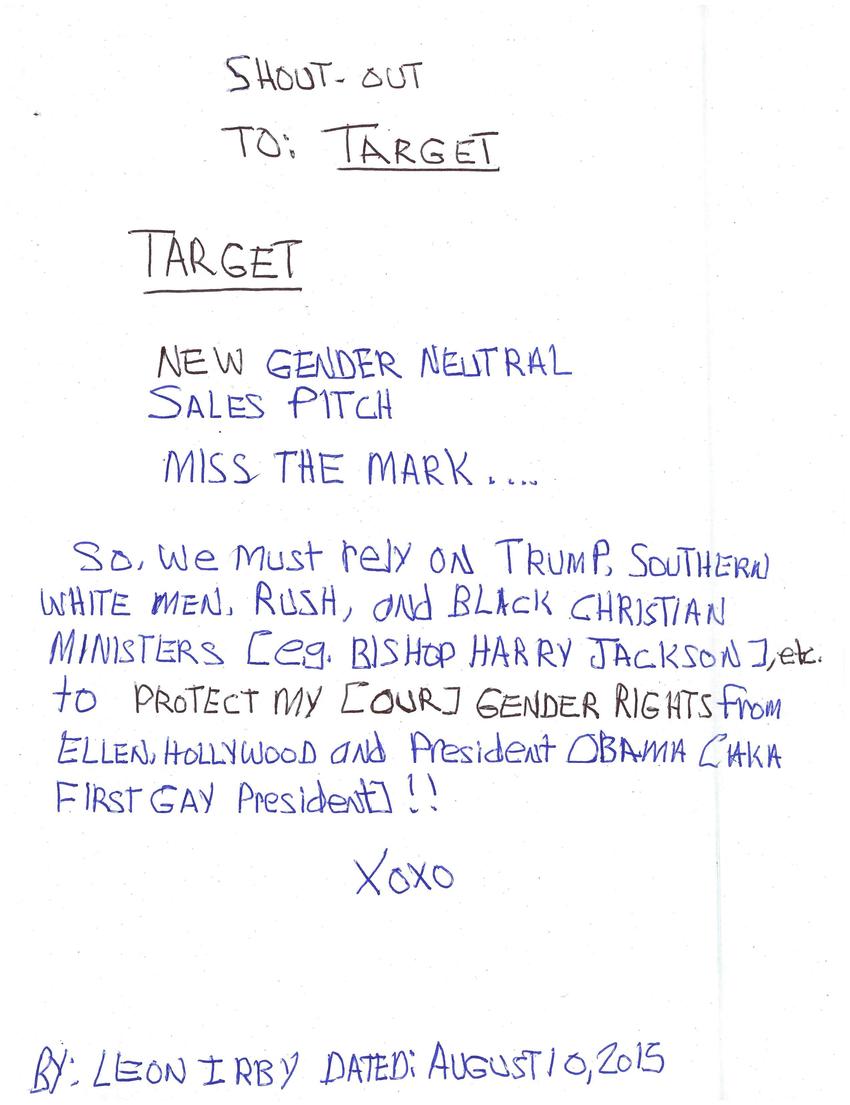 SHOUT-OUT
TO: TARGET
TARGET
NEW GENDER NEUTRAL
SALES PITCH
MISS THE MARK ....
So, we must rely ON TRUMP, SOUTHERN
WHITE MEN, RUSH, and BLACK CHRISTIAN
MINISTERS [eg. BISHOP HARRY JACKSON], etc.
to PROTECT MY [OUR] GENDER RIGHTS from
ELLEN, HOLLYWOOD and President OBAMA [AKA
FIRST GAY President] !!
XOXO
BY: LEON IRBY DATED: AUGUST 10, 2015